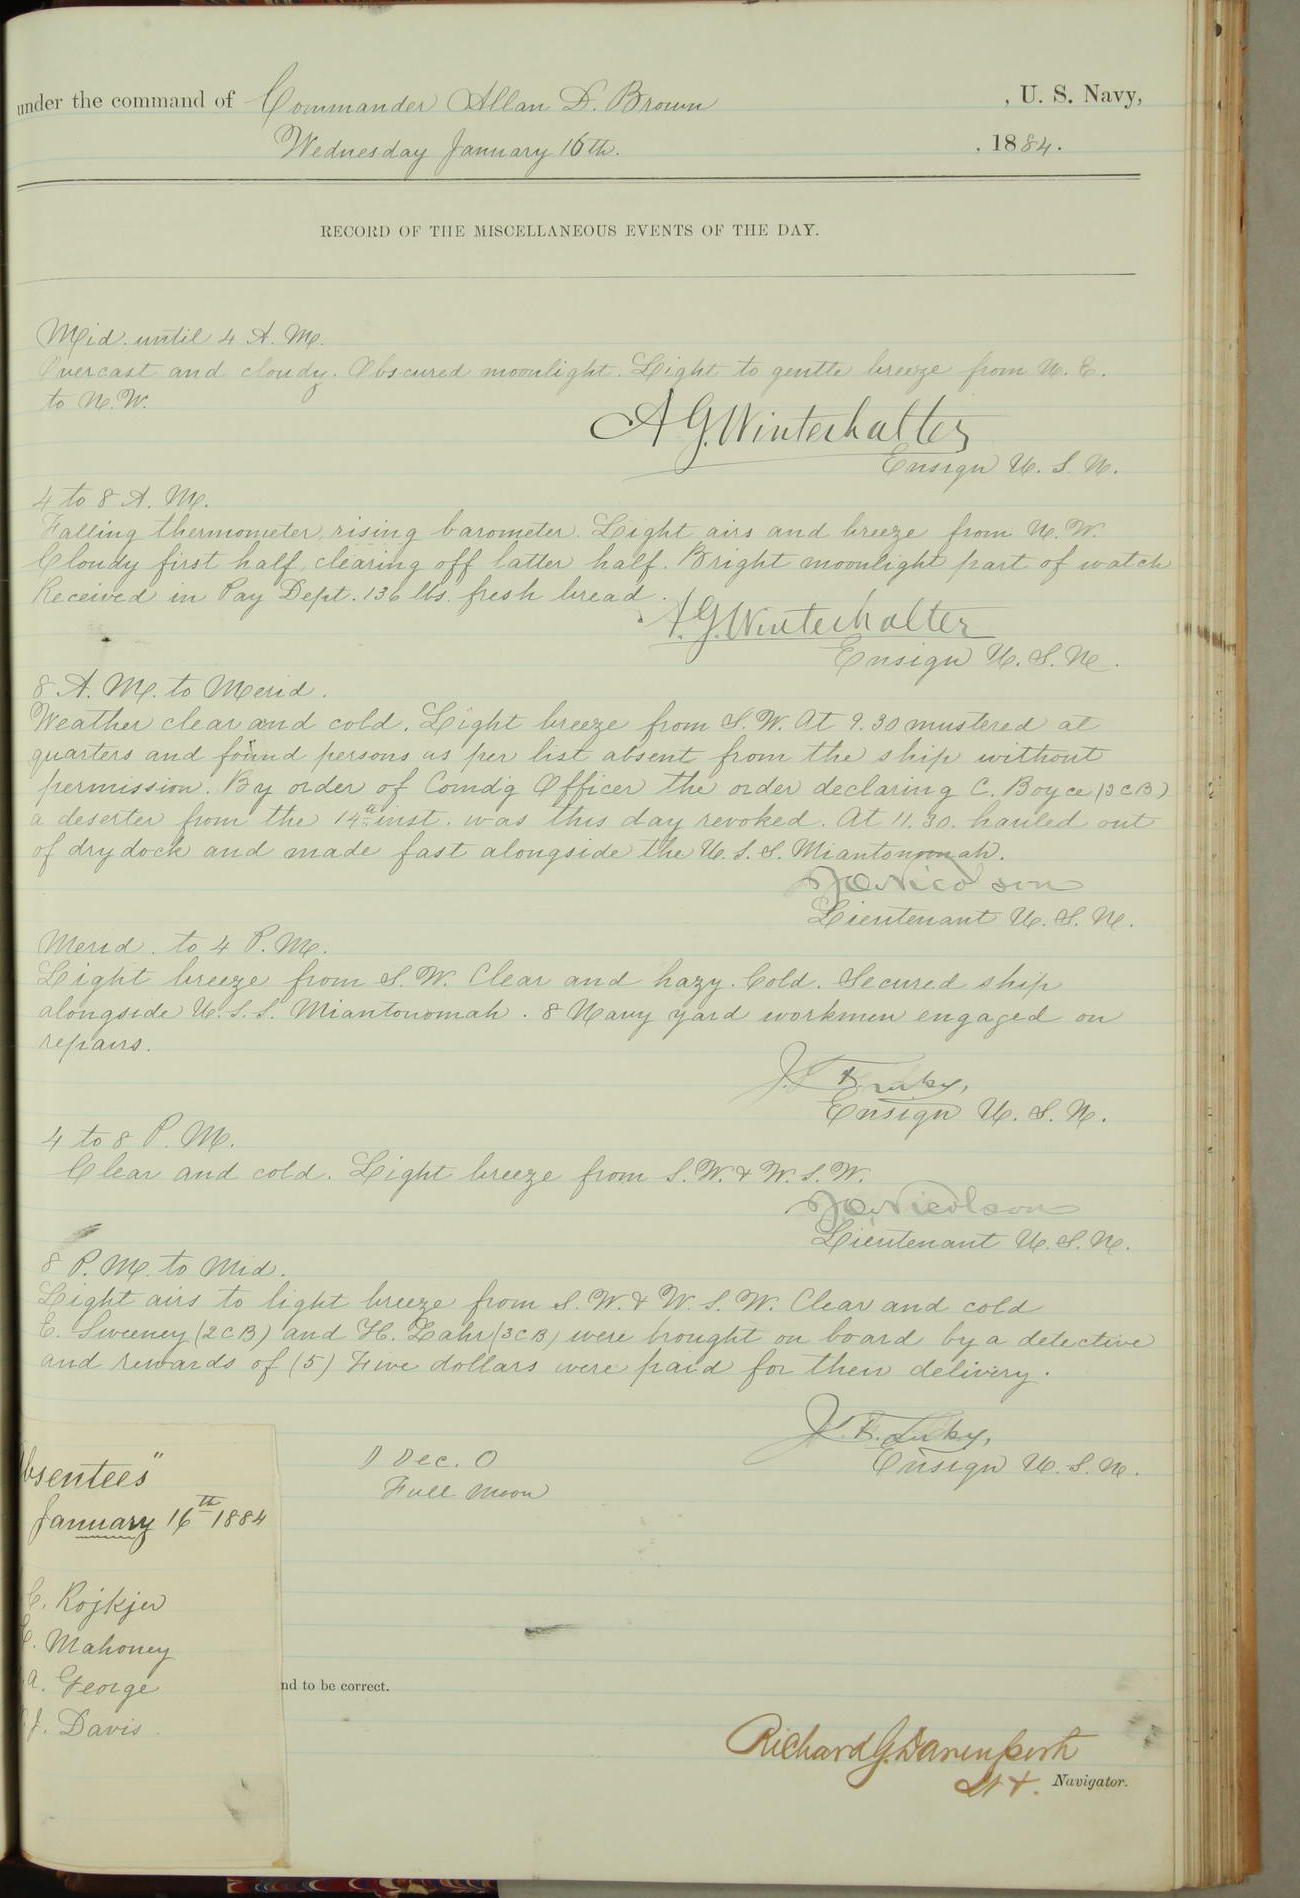 under the command of Commander Allan D. Brown, U. S. Navy,
Wednesday January 16th. . 1884.
RECORD OF THE MISCELLANEOUS EVENTS OF THE DAY.
Mid. until 4 A. M.
Overcast and cloudy. Obscured moonlight. Light to gentle breeze from N. E.
to N.W.
A G. Winterhalter
Ensign U. S. N.
4 to 8 A. M.
Falling thermometer, rising barometer. Light airs and breeze from N. W.
Cloudy first half, clearing off latter half. Bright moonlight part of watch
Received in Pay Dept. 136 lbs. fresh bread.
A. G. Winterhalter
Ensign U. S. N.
8 A. M. to Merid.
Weather clear and cold. Light breeze from S. W. At 9.30 mustered at
quarters and found persons as per list absent from the ship without
permission. By order of Comd'g Officer the order declaring C. Boyce (3CB)
a deserter from the 14th inst. was this day revoked. At 11.30. hauled out
of dry dock and made fast alongside the U. S. S. Miantonomah.
Nicolson
Lieutenant U. S. N.
Merid. to 4 P. M.
Light breeze from S. W. Clear and hazy. Cold. Secured ship
alongside U. S. S. Miantonomah. 8 Navy yard workmen engaged on
repairs.
Ensign U. S. N.
4 to 8 P. M.
Clear and cold. Light breeze from S. W. & W. S. W.
Nicolson
Lieutenant U. S. N.
8 P. M. to Mid.
Light airs to light breeze from S. W. & W. S. W. Clear and cold
E. Sweeney (2CB) and H. Lahr (3CB) were brought on board by a detective
and rewards of (5) Five dollars were paid for their delivery.
Ensign U. S. N.
Dec.
Full Moon
bsentees"
January 16th 1884
C. Rojkjer
Mahoney
a. George
J. Davis.
nd to be correct.
Richard G. Davenport
Lt. Navigator.